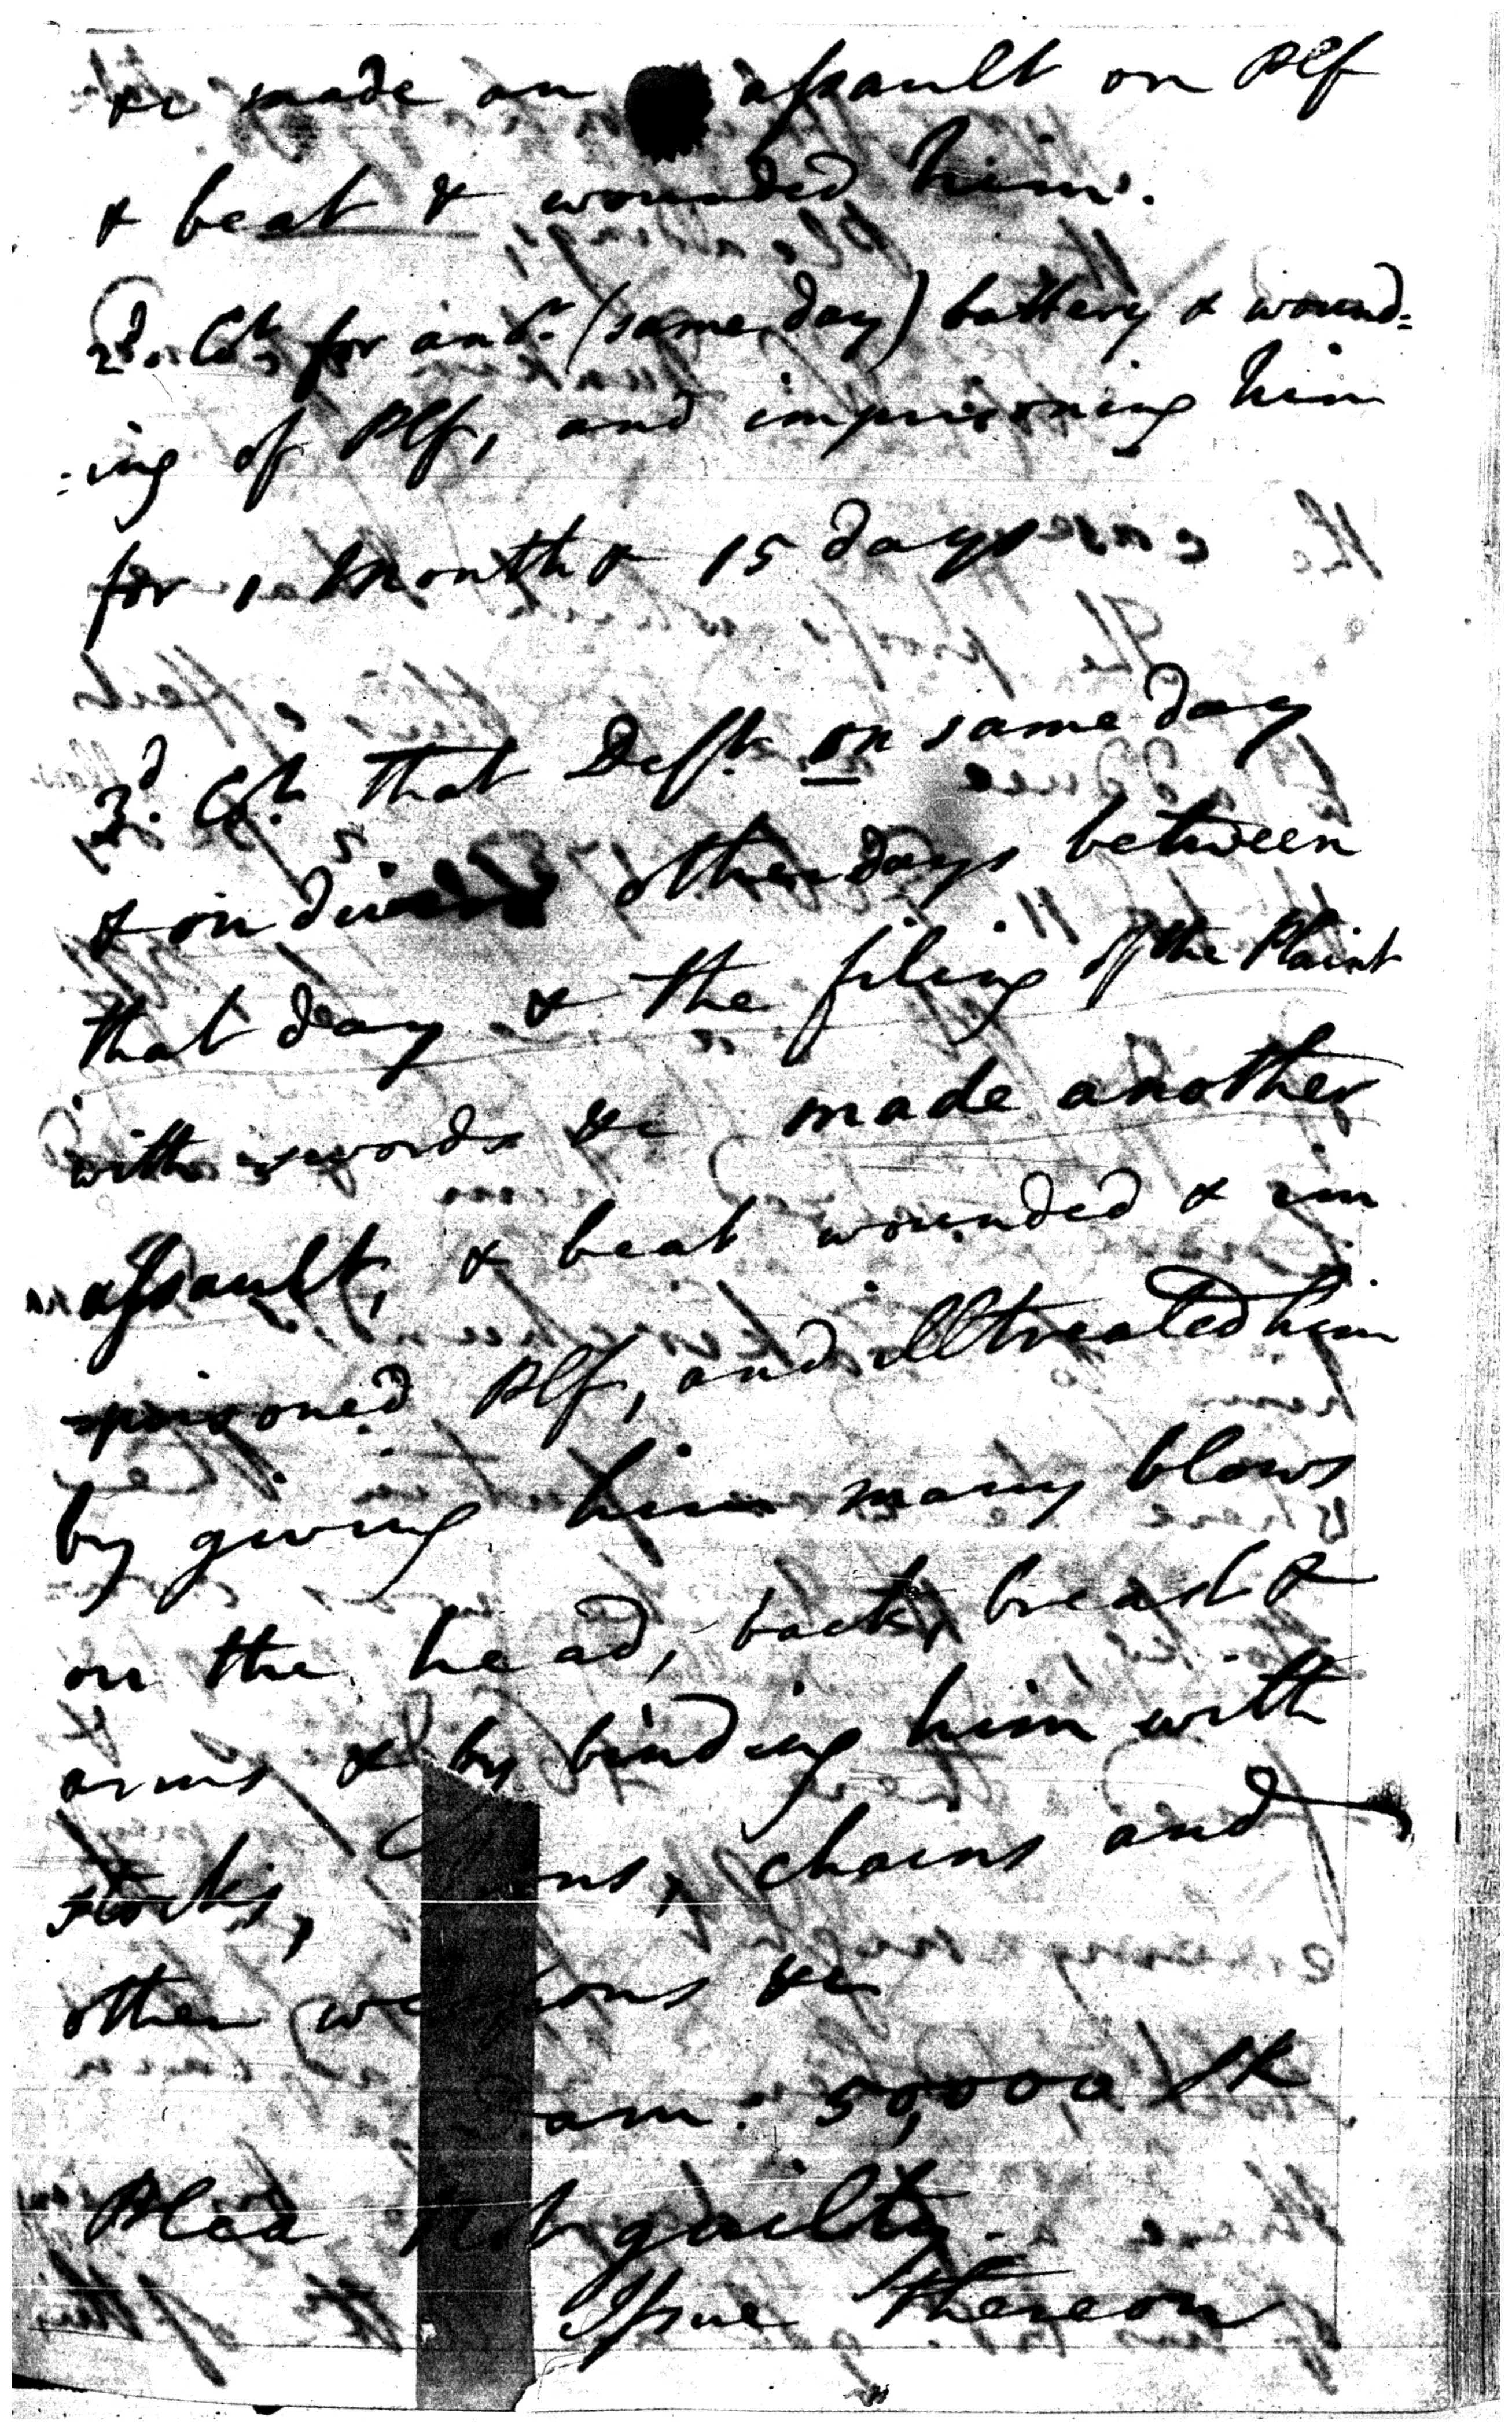 &c made an assault on Plf
& beat & wounded him.
2d. Ct. for anr. (same day) battery & wound=
=ing of Plf, and imprisoning him
for 1 Month & 15 days
3d. Ct. that Deft. on same day
& on divers other days between
that day & the filing of the Plaint
with swords &c made another
assault, & beat wounded & im
prisoned Plf, and illtreated him
by giving him many blows
on the head, back, breast &
arms & by binding him with
stocks, chains and
other weapons &c
Dam. 50,000 
Plea Not guilty.
Issue thereon